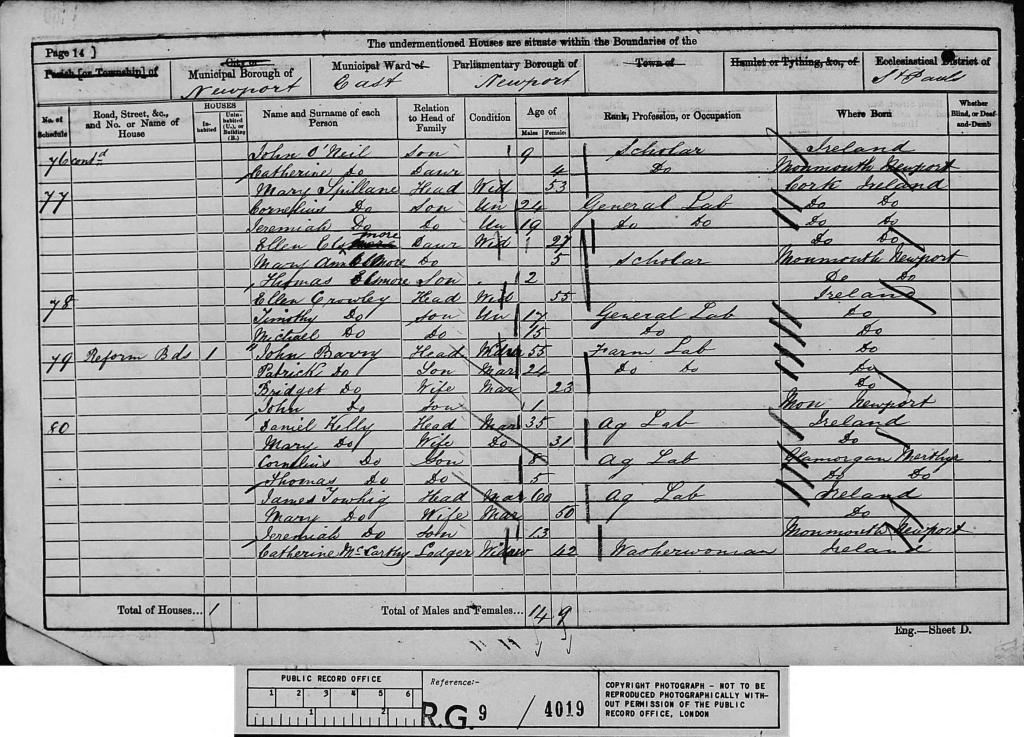 Page 14 ]
The undermentioned Houses are situate within the Boundaries of the
Parish [or Township] of
City or Municipal Borough of Newport
Municipal Ward of East
Parliamentary Borough of Newport
Town of
Hamlet or Tything, &c., of
Ecclesiastical District of St Pauls
No. of Schedule
Road, Street, &c., and No. or Name of House
HOUSES
Inhabited
Uninhabited (U.), or Building (B.)
Name and Surname of each Person
Relation to Head of Family
Condition
Age of
Males
Females
Rank, Profession, or Occupation
Where Born
Whether Blind, or Deaf-and-Dumb
76 contd John O'Neil Son 9 Scholar Ireland
Catherine Do Daur 4 Do Monmouth Newport
77 Mary Spillane Head Wid 53 Cork Ireland
Cornelius Do Son Un 24 General Lab Do Do
Jeremiah Do Do Un 19 Do Do Do Do
Ellen more Daur Wid 27 Do Do
Mary Ann Do 5 Scholar Monmouth Newport
Thomas Elsmore Son 2 Do Do
78 Ellen Crowley Head Wid 55 Ireland
Timothy Do Son Un 17 General Lab Do
Michael Do Do 15 Do Do
79 Reform Bds 1 John Barry Head Widr 55 Farm Lab Do
Patrick Do Son Mar 24 Do Do Do
Bridget Do Wife Mar 23 Do
John Do Son 1 Mon Newport
80 Daniel Kelly Head Mar 35 Ag Lab Ireland
Mary Do Wife Do 31 Do
Cornelius Do Son 8 Ag Lab Glamorgan Merthyr
Thomas Do Do 5 Do Do
James Towhig Head Mar 60 Ag Lab Ireland
Mary Do Wife Mar 50 Do
Jeremiah Do Son 13 Monmouth Newport
Catherine McCarthy Lodger Widow 42 Washerwoman Ireland
Total of Houses... 1
Total of Males and Females... 14 9
Eng.—Sheet D.
PUBLIC RECORD OFFICE
1 2 3 4 5 6
1 2
Reference:-
R.G. 9 / 4019
COPYRIGHT PHOTOGRAPH - NOT TO BE
REPRODUCED PHOTOGRAPHICALLY WITH-
OUT PERMISSION OF THE PUBLIC
RECORD OFFICE, LONDON